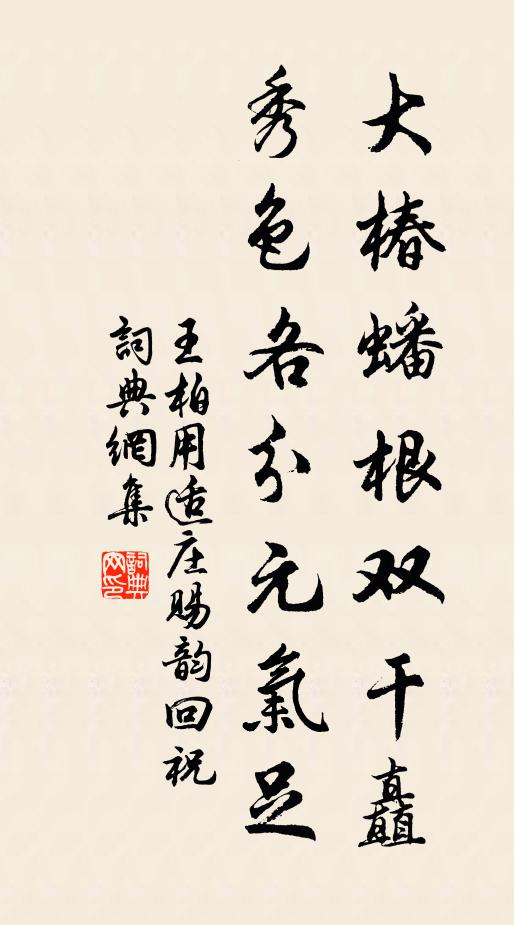 大椿蟠根双干矗
秀色各分元氣足
王柏用适庄賜韵回祝
詞典網集
詞典网印